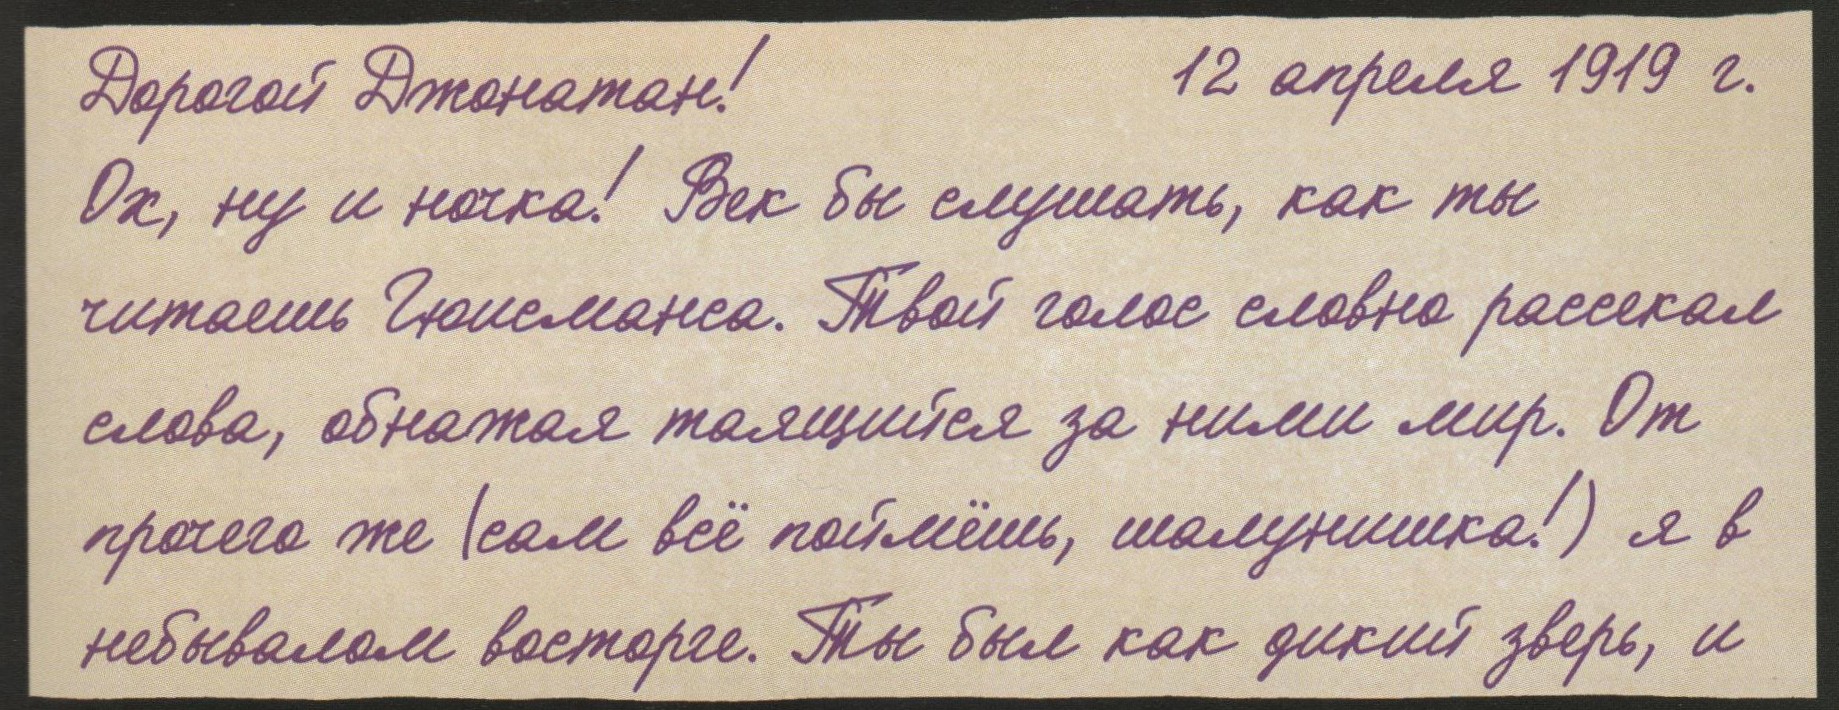 Дорогой Джонатан! 12 апреля 1919 г.
Ох, ну и ночка! Век бы слушать, как ты
читаешь Гюисманса. Твой голос словно рассекал
слова, обнажая таящийся за ними мир. От
прочего же (сам всё поймёшь, шалунишка!) я в
небывалом восторге. Ты был как дикий зверь, и